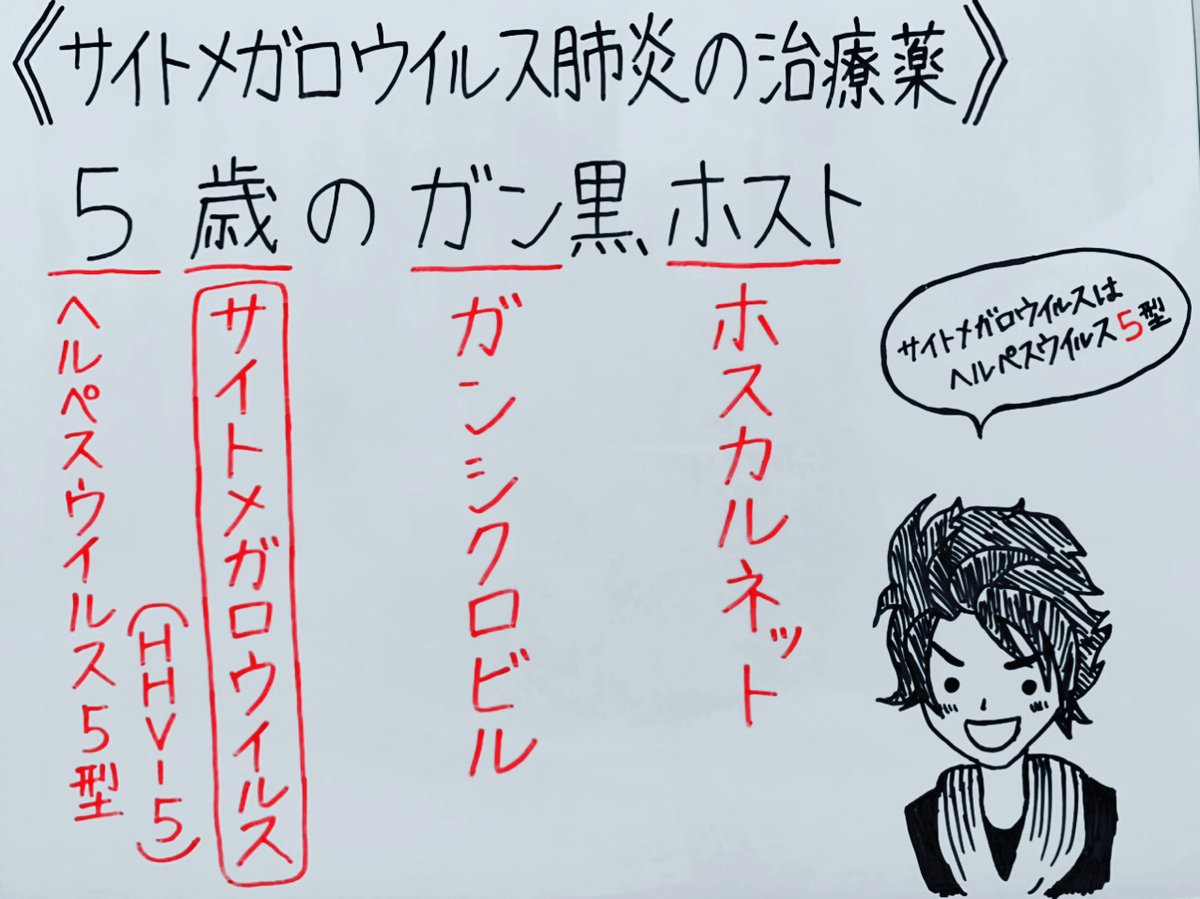 《サイトメガロウイルス肺炎の治療薬》
5歳のガン黒ホスト
ヘルペスウイルス5型
(HHV-5)
サイトメガロウイルス
ガンシクロビル
ホスカルネット
サイトメガロウイルスは
ヘルペスウイルス5型